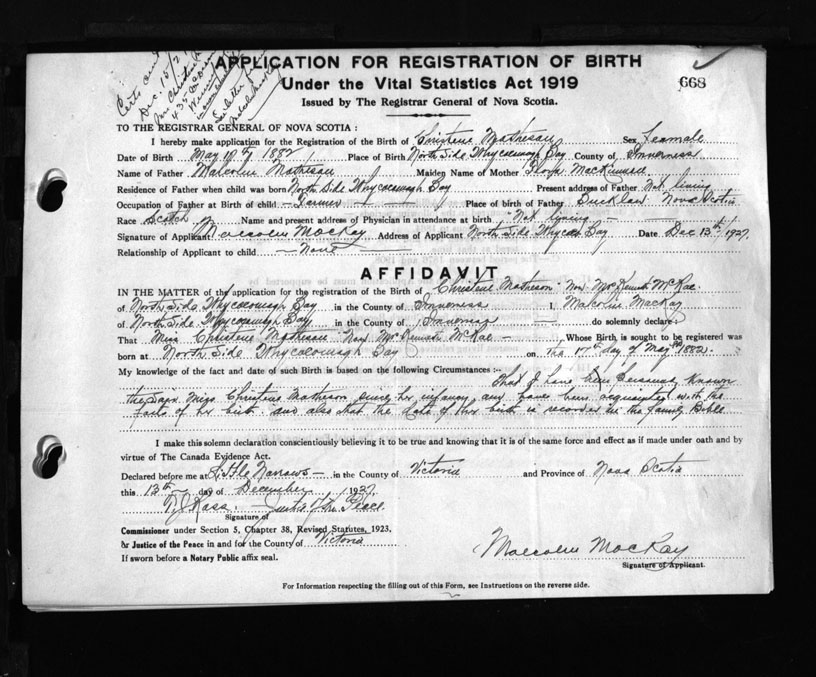 Certs and
Dec. 15/27
Mrs Christina
435
APPLICATION FOR REGISTRATION OF BIRTH
Under the Vital Statistics Act 1919
668
Issued by The Registrar General of Nova Scotia.
TO THE REGISTRAR GENERAL OF NOVA SCOTIA :
I hereby make application for the Registration of the Birth of Christene Matheson Sex Feamale
Date of Birth May 17th 1882 Place of Birth North Side Whycocomagh Bay County of Inverness
Name of Father Malcolm Matheson Maiden Name of Mother Flora MacKinnon
Residence of Father when child was born North Side Whycocomagh Bay Present address of Father Not living
Occupation of Father at Birth of child Farmer Place of birth of Father Bucklaw Nova Scotia
Race Scotch Name and present address of Physician in attendance at birth "Not living"
Signature of Applicant Malcolm MacKay Address of Applicant North Side Whyco Bay Date Dec 13th 1927.
Relationship of Applicant to child None
AFFIDAVIT
IN THE MATTER of the application for the registration of the Birth of Christene Matheson Now Mrs Kenneth McRae
of North Side Whycocomagh Bay in the County of Inverness I, Malcolm MacKay
of North Side Whycocomagh Bay in the County of Inverness do solemnly declare
That Miss Christene Matheson Now Mrs Kenneth McRae Whose Birth is sought to be registered was
born at North Side Whycocomagh Bay on the 17th day of May 1882.
My knowledge of the fact and date of such Birth is based on the following Circumstances :-- That I have been Personaly Known
the Said Miss Christene Matheson since her infancy and have been acquainted with the
facts of her birth and also that the date of her birth is recorded in the family Bible
I make this solemn declaration conscientiously believing it to be true and knowing that it is of the same force and effect as if made under oath and by
virtue of The Canada Evidence Act.
Declared before me at Little Narrows in the County of Victoria and Province of Nova Scotia
this 13th day of December 1927.
Ross Justice of the Peace
Signature of
Commissioner under Section 5, Chapter 38, Revised Statutes, 1923.
or Justice of the Peace in and for the County of Victoria
If sworn before a Notary Public affix seal.
Malcolm MacKay
Signature of Applicant.
For Information respecting the filling out of this Form, see Instructions on the reverse side.